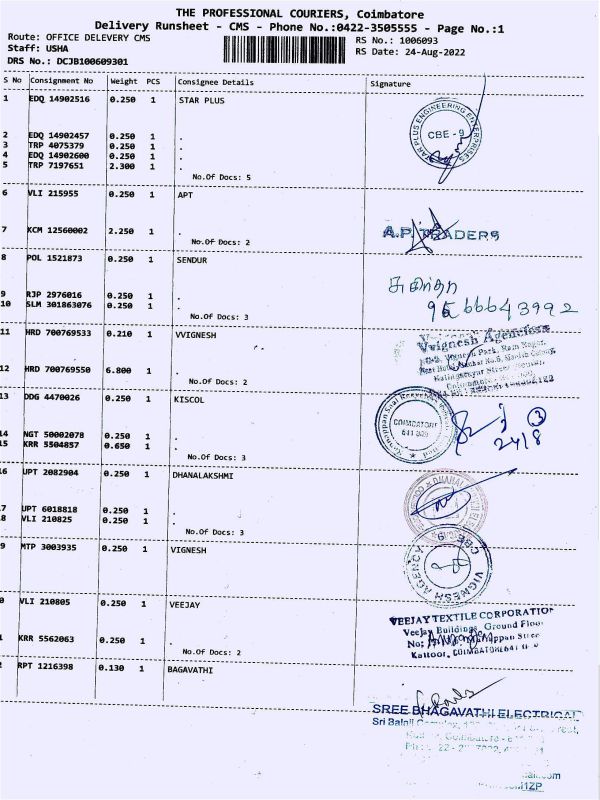 THE PROFESSIONAL COURIERS, Coimbatore
Delivery Runsheet - CMS - Phone No.:0422-3505555 - Page No.:1
Route: OFFICE DELEVERY CMS
RS No.: 1006093
Staff: USHA
RS Date: 24-Aug-2022
DRS No.: DCJB100609301
S No Consignment No Weight PCS Consignee Details Signature
1 EDQ 14902516 0.250 1 STAR PLUS
STAR PLUS ENGINEERING ENTERPRISES
CBE - 9
2 EDQ 14902457 0.250 1 .
3 TRP 4075379 0.250 1 .
4 EDQ 14902600 0.250 1 .
5 TRP 7197651 2.300 1 .
No.Of Docs: 5
6 VLI 215955 0.250 1 APT
7 KCM 12560002 2.250 1 .
A.P. TRADERS
No.Of Docs: 2
8 POL 1521873 0.250 1 SENDUR
9 RJP 2976016 0.250 1 .
10 SLM 301863076 0.250 1 .
No.Of Docs: 3
11 HRD 700769533 0.210 1 VVIGNESH
Vvignesh Agencies
12 HRD 700769550 6.800 1 .
No.Of Docs: 2
13 DDG 4470026 0.250 1 KISCOL
COIMBATORE
3
24/8
14 NGT 50002078 0.250 1 .
15 KRR 5504857 0.650 1 .
No.Of Docs: 3
16 UPT 2082904 0.250 1 DHANALAKSHMI
7 UPT 6018818 0.250 1 .
8 VLI 210825 0.250 1 .
No.Of Docs: 3
9 MTP 3003935 0.250 1 VIGNESH
VIGNESH AGENCY CBE-9
0 VLI 210805 0.250 1 VEEJAY
VEEJAY TEXTILE CORPORATION
Veejay Buildings, Ground Floor
1 KRR 5562063 0.250 1 .
Kattoor, COIMBATORE
No.Of Docs: 2
2 RPT 1216398 0.130 1 BAGAVATHI
SREE BHAGAVATHI ELECTRICAL
Sri Balaji